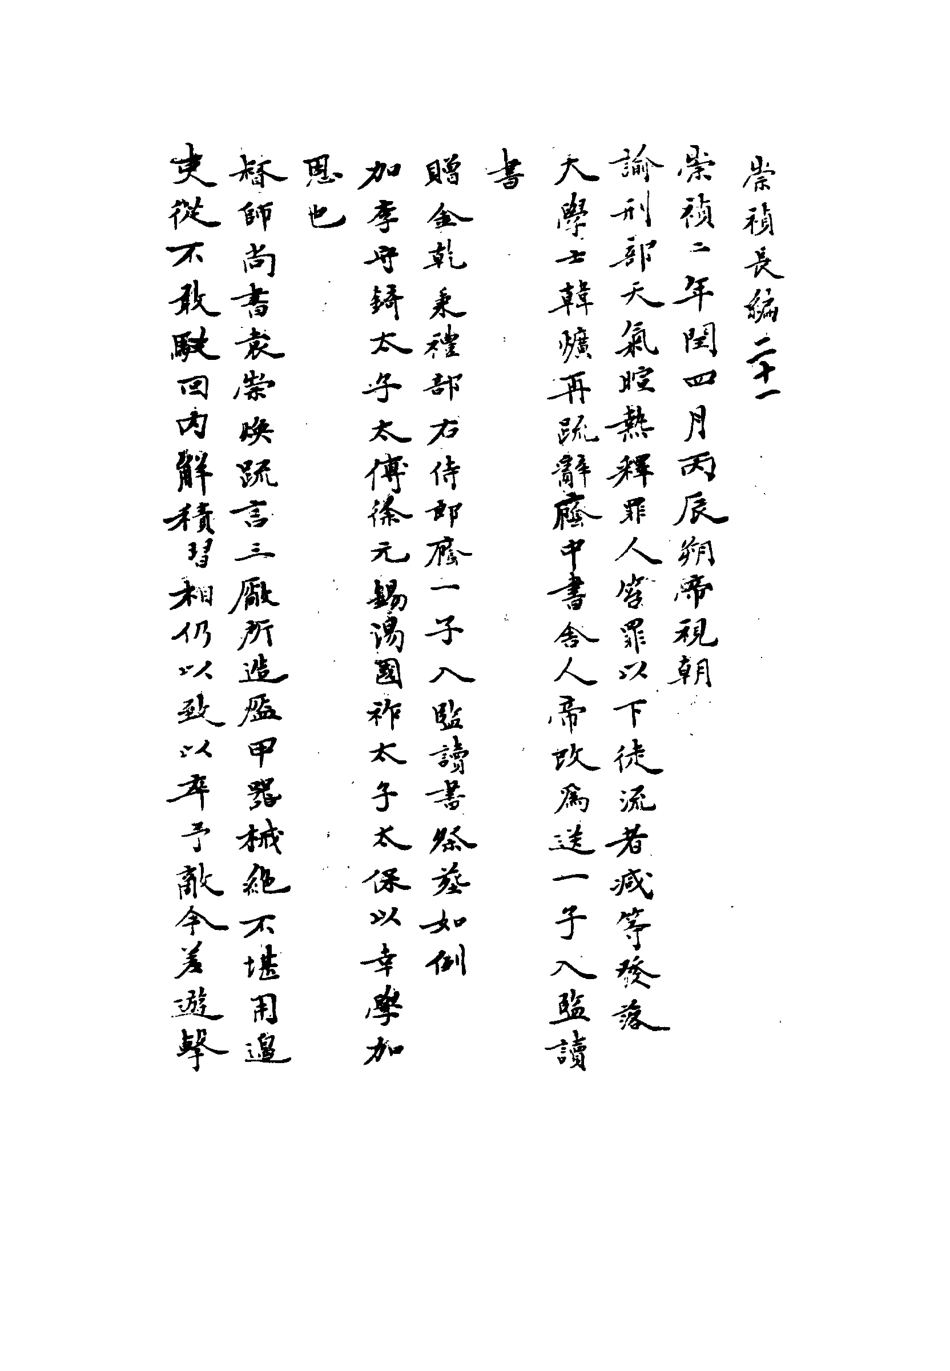 崇禎長編二十一
崇禎二年閏四月丙辰朔帝視朝
諭刑部天氣暄熱釋罪人笞罪以下徒流者减等發落
大學士韓爌再疏辭廕中書舍人帝改為送一子入監讀
書
贈金乾秉禮部右侍郎廕一子入監讀書祭葬如例
加李守錡太子太傅徐元錫湯國祚太子太保以幸學加
恩也
督師尚書袁崇煥疏言三廠所造盔甲器械絶不堪用邊
吏從不敢駁回內解積習相仍以致以卒予敵今差遊擊